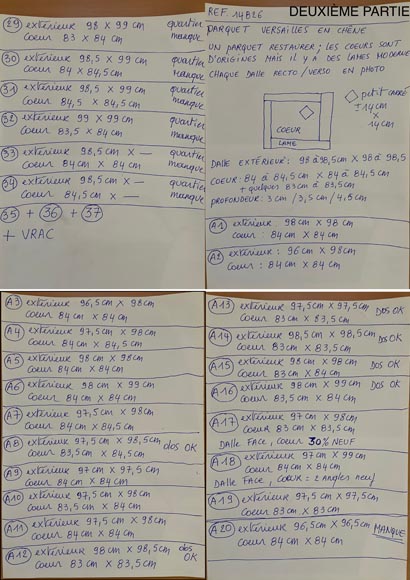 29 extérieur 98 X 99 cm quartier
Coeur 83 X 84 cm manque
30 extérieur 98,5 X 99 cm quartier
Coeur 84 X 84,5 cm manque
31 extérieur 98,5 X 99 cm quartier
Coeur 84,5 X 84 cm manque
32 extérieur 99 X 99 cm quartier
Coeur 83,5 X 84 cm manque
33 extérieur 98,5 cm X — quartier
Coeur 84 cm X 84 cm manque
34 extérieur 98,5 cm X — quartier
Coeur 84,5 cm X — manque
35 + 36 + 37
+ VRAC
DEUXIÈME PARTIE
REF. 14B26
PARQUET VERSAILLES EN CHÊNE
UN PARQUET RESTAURER ; LES COEURS SONT
D'ORIGINES MAIS IL Y A DES LAMES MODERNE
CHAQUE DALLE RECTO / VERSO EN PHOTO
petit carré
± 14 cm
X
14 cm
COEUR
LAME
DALLE EXTÉRIEURE : 98 à 98,5 cm X 98 à 98,5
COEUR : 84 à 84,5 cm X 84 à 84,5 cm
+ quelques 83 cm à 83,5 cm
PROFONDEUR : 3 cm / 3,5 cm / 4,5 cm
A1 extérieur 98 cm X 98 cm
Coeur : 84 cm X 84 cm
A2 extérieur : 96 cm X 98 cm
Coeur : 84 cm X 84 cm
A3 extérieur 96,5 cm X 98 cm
Coeur 84 cm X 84 cm
A4 extérieur 97,5 cm X 98 cm
Coeur 84 cm X 84,5 cm
A5 extérieur 98 cm X 98 cm
Coeur 84 cm X 84 cm
A6 extérieur 98 cm X 99 cm
Coeur 84 cm X 84 cm
A7 extérieur 97,5 cm X 98 cm
Coeur 84 cm X 84,5 cm
A8 extérieur 97,5 cm X 98,5 cm dos OK
Coeur 83,5 cm X 84,5 cm
A9 extérieur 97 cm X 97,5 cm
Coeur 84 cm X 84 cm
A10 extérieur 97,5 cm X 98 cm
Coeur 83,5 cm X 84 cm
A11 extérieur 97,5 cm X 98 cm
Coeur 84 cm X 84 cm
A12 extérieur 98 cm X 98,5 cm dos OK
Coeur 83 cm X 83,5 cm
A13 extérieur 97,5 cm X 97,5 cm Dos OK
Coeur 83 cm X 83,5 cm
A14 extérieur 98,5 cm X 98,5 cm Dos OK
Coeur 83 cm X 83,5 cm
A15 extérieur 98 cm X 98 cm Dos OK
Coeur 83 cm X 84 cm
A16 extérieur 98 cm X 99 cm Dos OK
Coeur 83,5 cm X 84 cm
A17 extérieur 97 cm X 98 cm
Coeur 83 cm X 83,5 cm
Dalle FACE, coeur 30% NEUF
A18 extérieur 97 cm X 99 cm
Coeur 84 cm X 84 cm
Dalle FACE, coeur : 2 angles neuf
A19 extérieur 97,5 cm X 97,5 cm
Coeur 83 cm X 83 cm
A20 extérieur 96,5 cm X 96,5 cm MANQUE
Coeur 84 cm X 84 cm